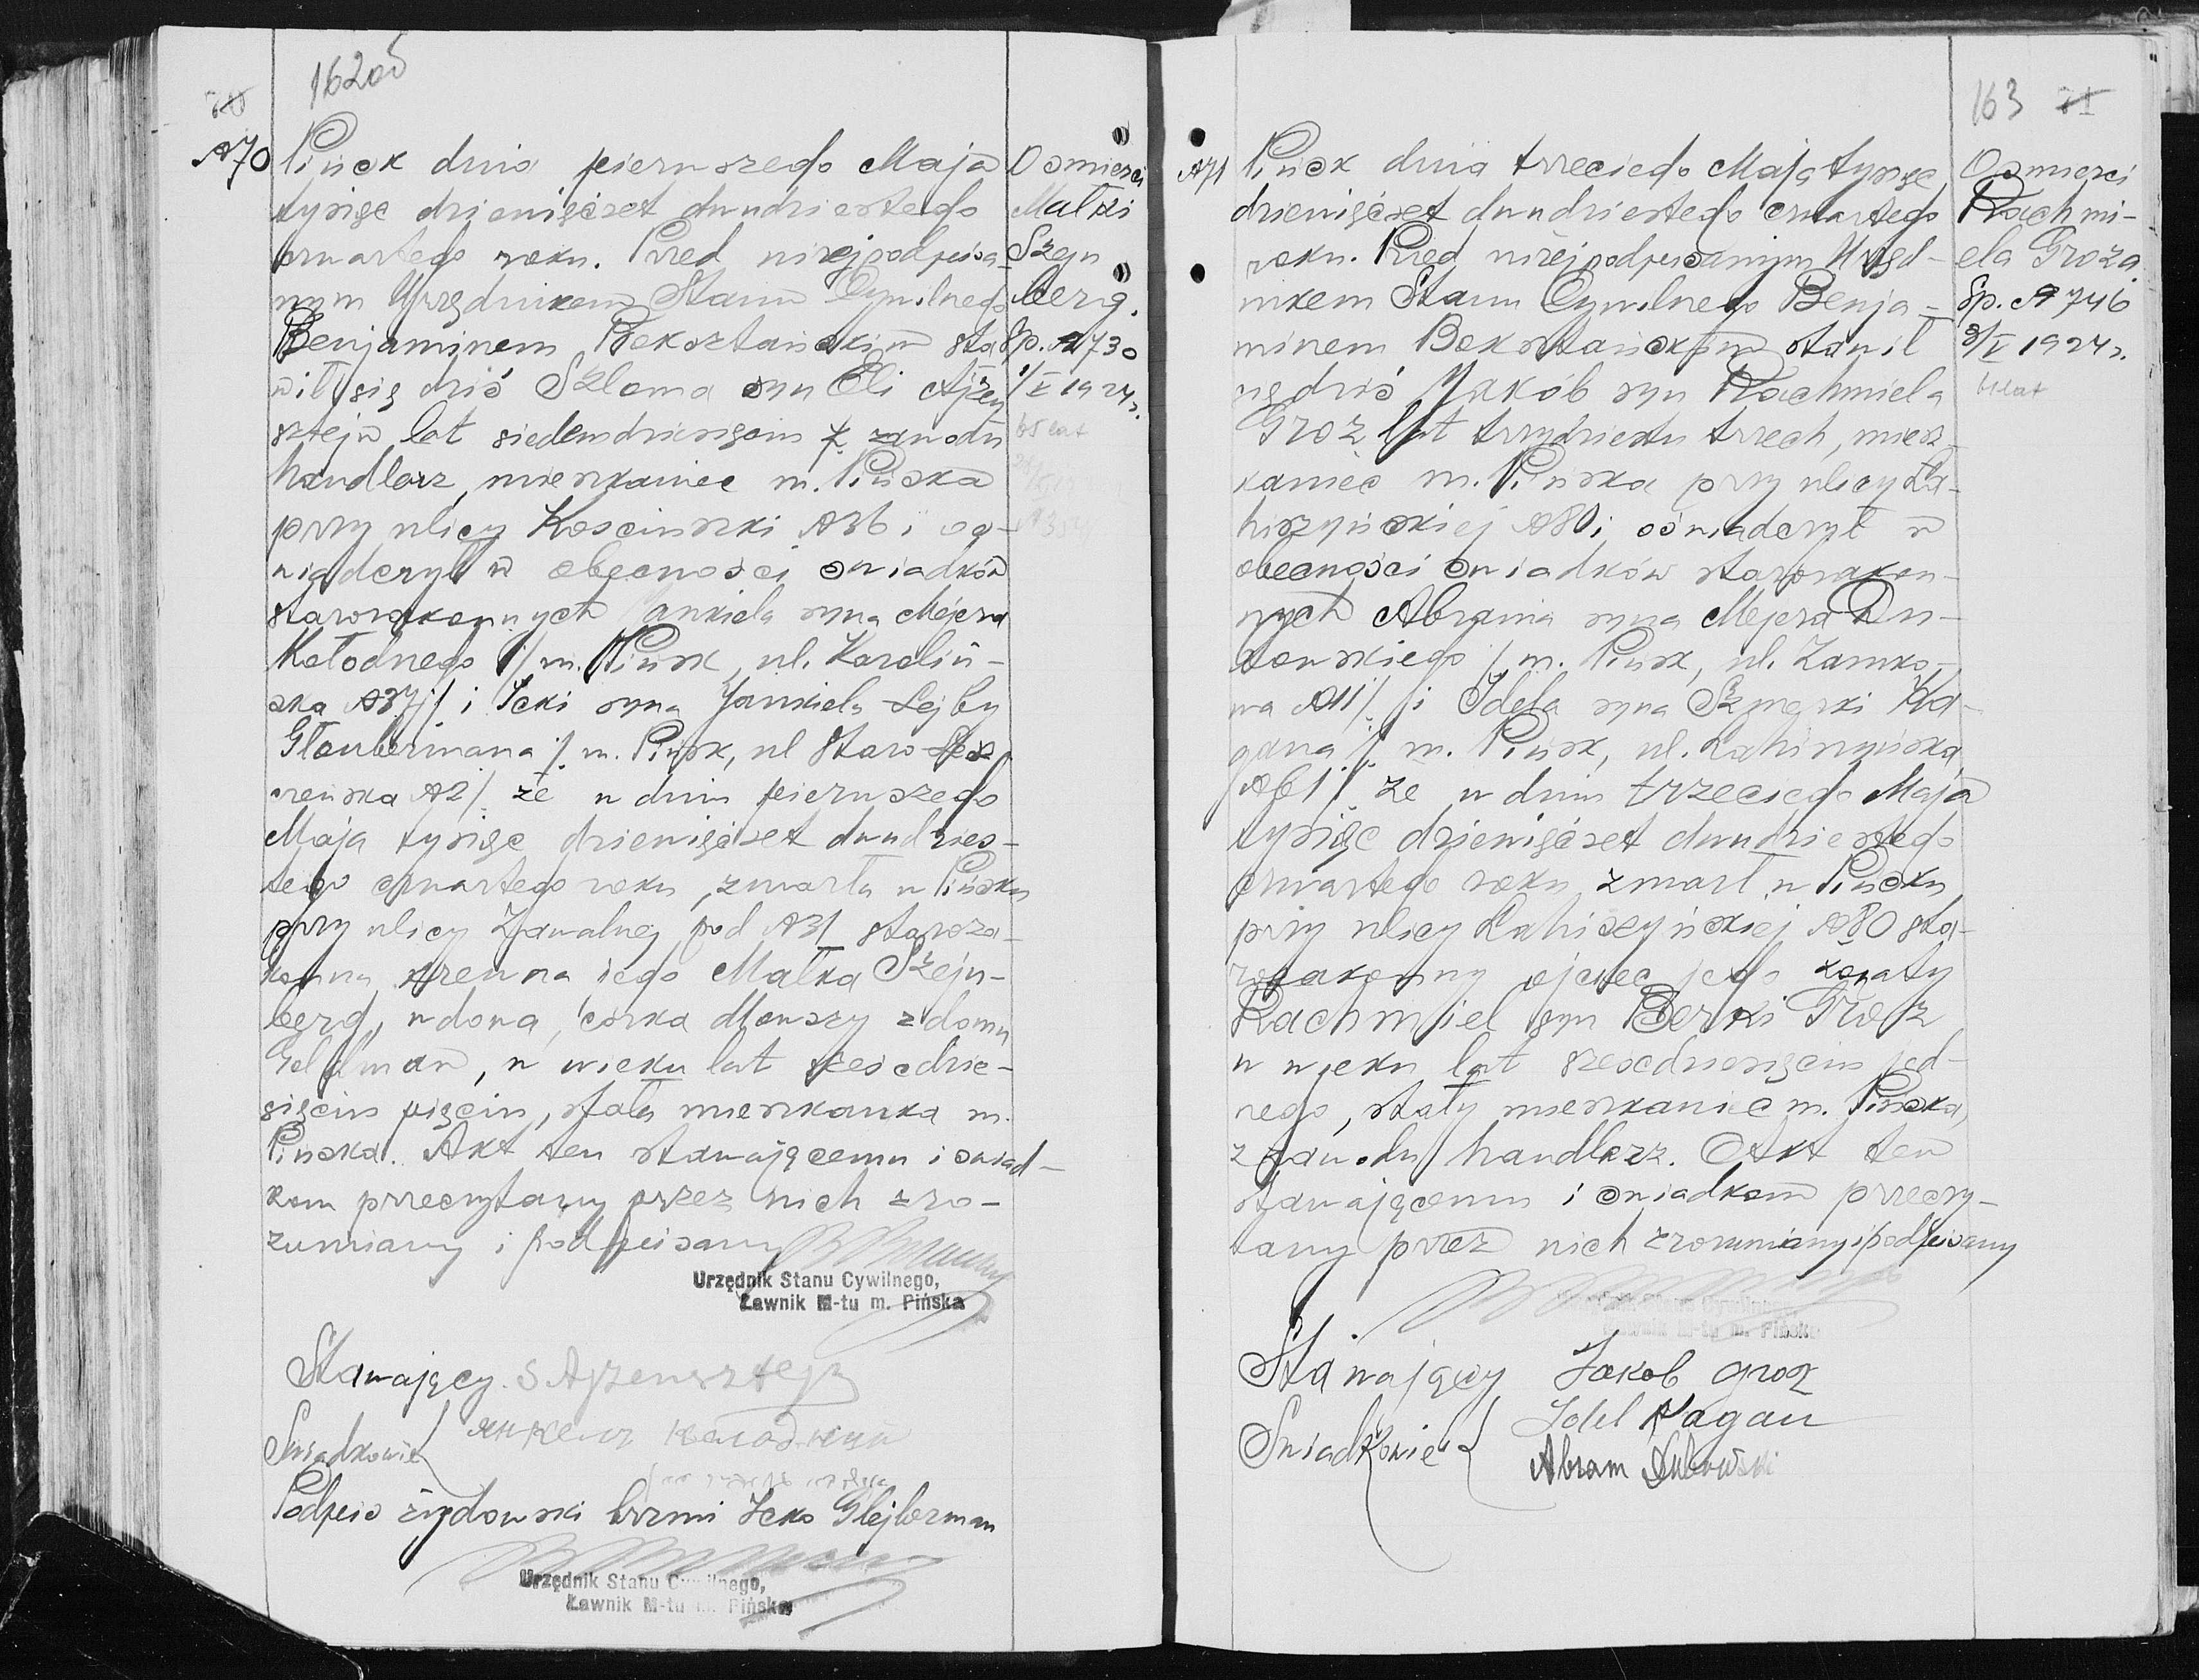 162об
70
№70
Pińsk dnia pierwszego Maja
tysiąc dziewięćset dwudziestego
czwartego roku. Przed niżejpodpisa-
nym Urzędnikem Stanu Cywilnego
Benjaminem Boksztańskim sta
wił się dziś Szloma syn Eli Ajzen
sztejn lat siedemdziesięciu z zawodu
handlarz, mieszkaniec m. Pińska
przy ulicy Kosciuszki №36 i oś-
wiadczył w obecności swiadków
starozakonnych Jankiela syna Mejera
Kołodnego /m. Pińsk, ul. Karoliń-
ska №37/ i Icki syna Jankiela Lejby
Gloubermana /m. Pińsk, ul Staro
№2/ że w dniu pierwszego
Maja tysiąc dziewięćset dwudzies-
tego czwartego roku, zmarła w Pińsku
przy ulicy Zawalnej pod №31 staroza-
konna krewna jego Małka Szejn-
berg, wdowa, córka Mowszy z domu
Gelfman, w wieku lat sześcdzie-
sięciu pięciu, stała mieszkanka m.
Pińska. Akt ten stawającemu i świad-
kom przeczytany przez nich zro-
zumiany i podpisany
Urzędnik Stanu Cywilnego,
Ławnik M-tu m. Pińska
Stawający S Ajzensztejn
Swiadkowie
Podpis żydowski brzmi Icko Glejberman
Urzędnik Stanu Cywilnego,
Ławnik M-tu m. Pińska
O smierci
Małki
Szejn
berg.
Sp. №730
1/V 1924r.
65 lat
163 71
№71
Pińsk dnia trzeciego Maja tysiąc
dziewięćset dwudziestego czwartego
roku. Przed niżejpodpisanym Urzęd-
nikem Stanu Cywilnego Benja-
minem Boksztańskim stawił
się dziś Jakób syn Rachmiela
Groz lat trzydziestu trzech, miesz-
kaniec m. Pińska przy ulicy Ła-
hiszyńskiej №80 i oświadczył w
obecności swiadków starozakon-
nych Abrama syna Mejera Du-
bowskiego /m. Pińsk, ul. Zamko-
wa №11/ i Idela syna Szmerki Ka-
gana /m. Pińsk, ul. Łahiszyńska
№61/ że w dniu trzeciego Maja
tysiąc dziewięćset dwudziestego
czwartego roku zmarł w Pińsku
przy ulicy Łahiszyńskiej №80 sta-
rozakonny ojciec jego żonaty
Rachmiel syn Berki Groz
w wieku lat sześcdziesięciu jed-
nego, stały mieszkaniec m. Pińska,
z zawodu handlarz. Akt ten
stawającemu i swiadkom przeczy-
tany przez nich zrozumiany i podpisany
Urzędnik Stanu Cywilnego,
Ławnik M-tu m. Pińska
Stawający Jakob Groz
Swiadkowie Idel Kagan
Abram Dubowski
O smierci
Rachmi-
ela Groza
Sp. №746
3/V 1924r.
61 lat